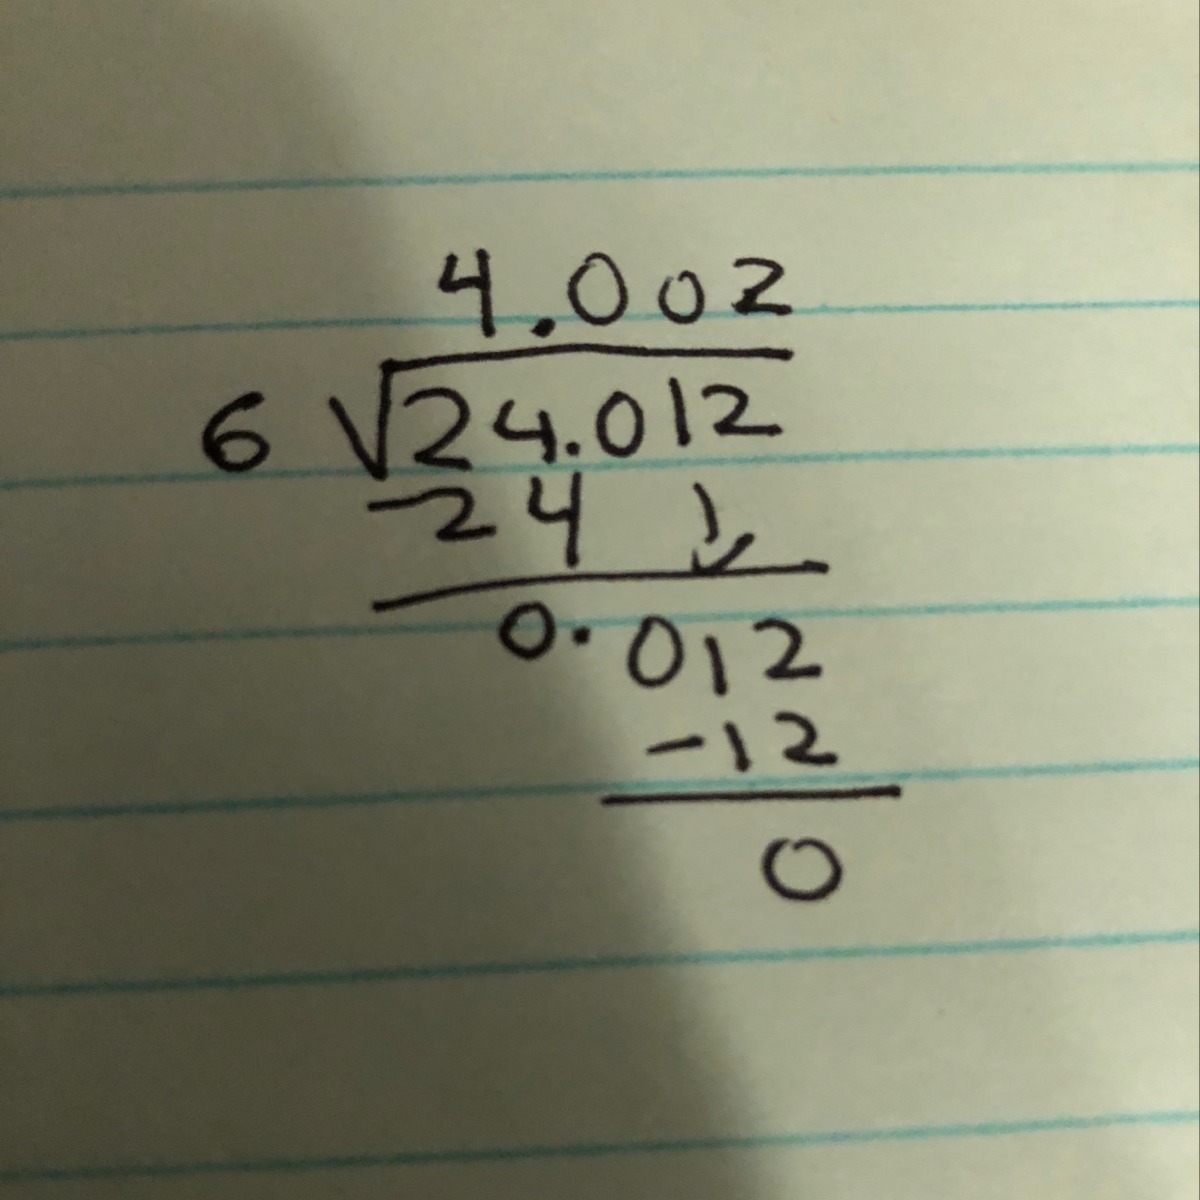 4.002
6 √24.012
-24
0.012
-12
0